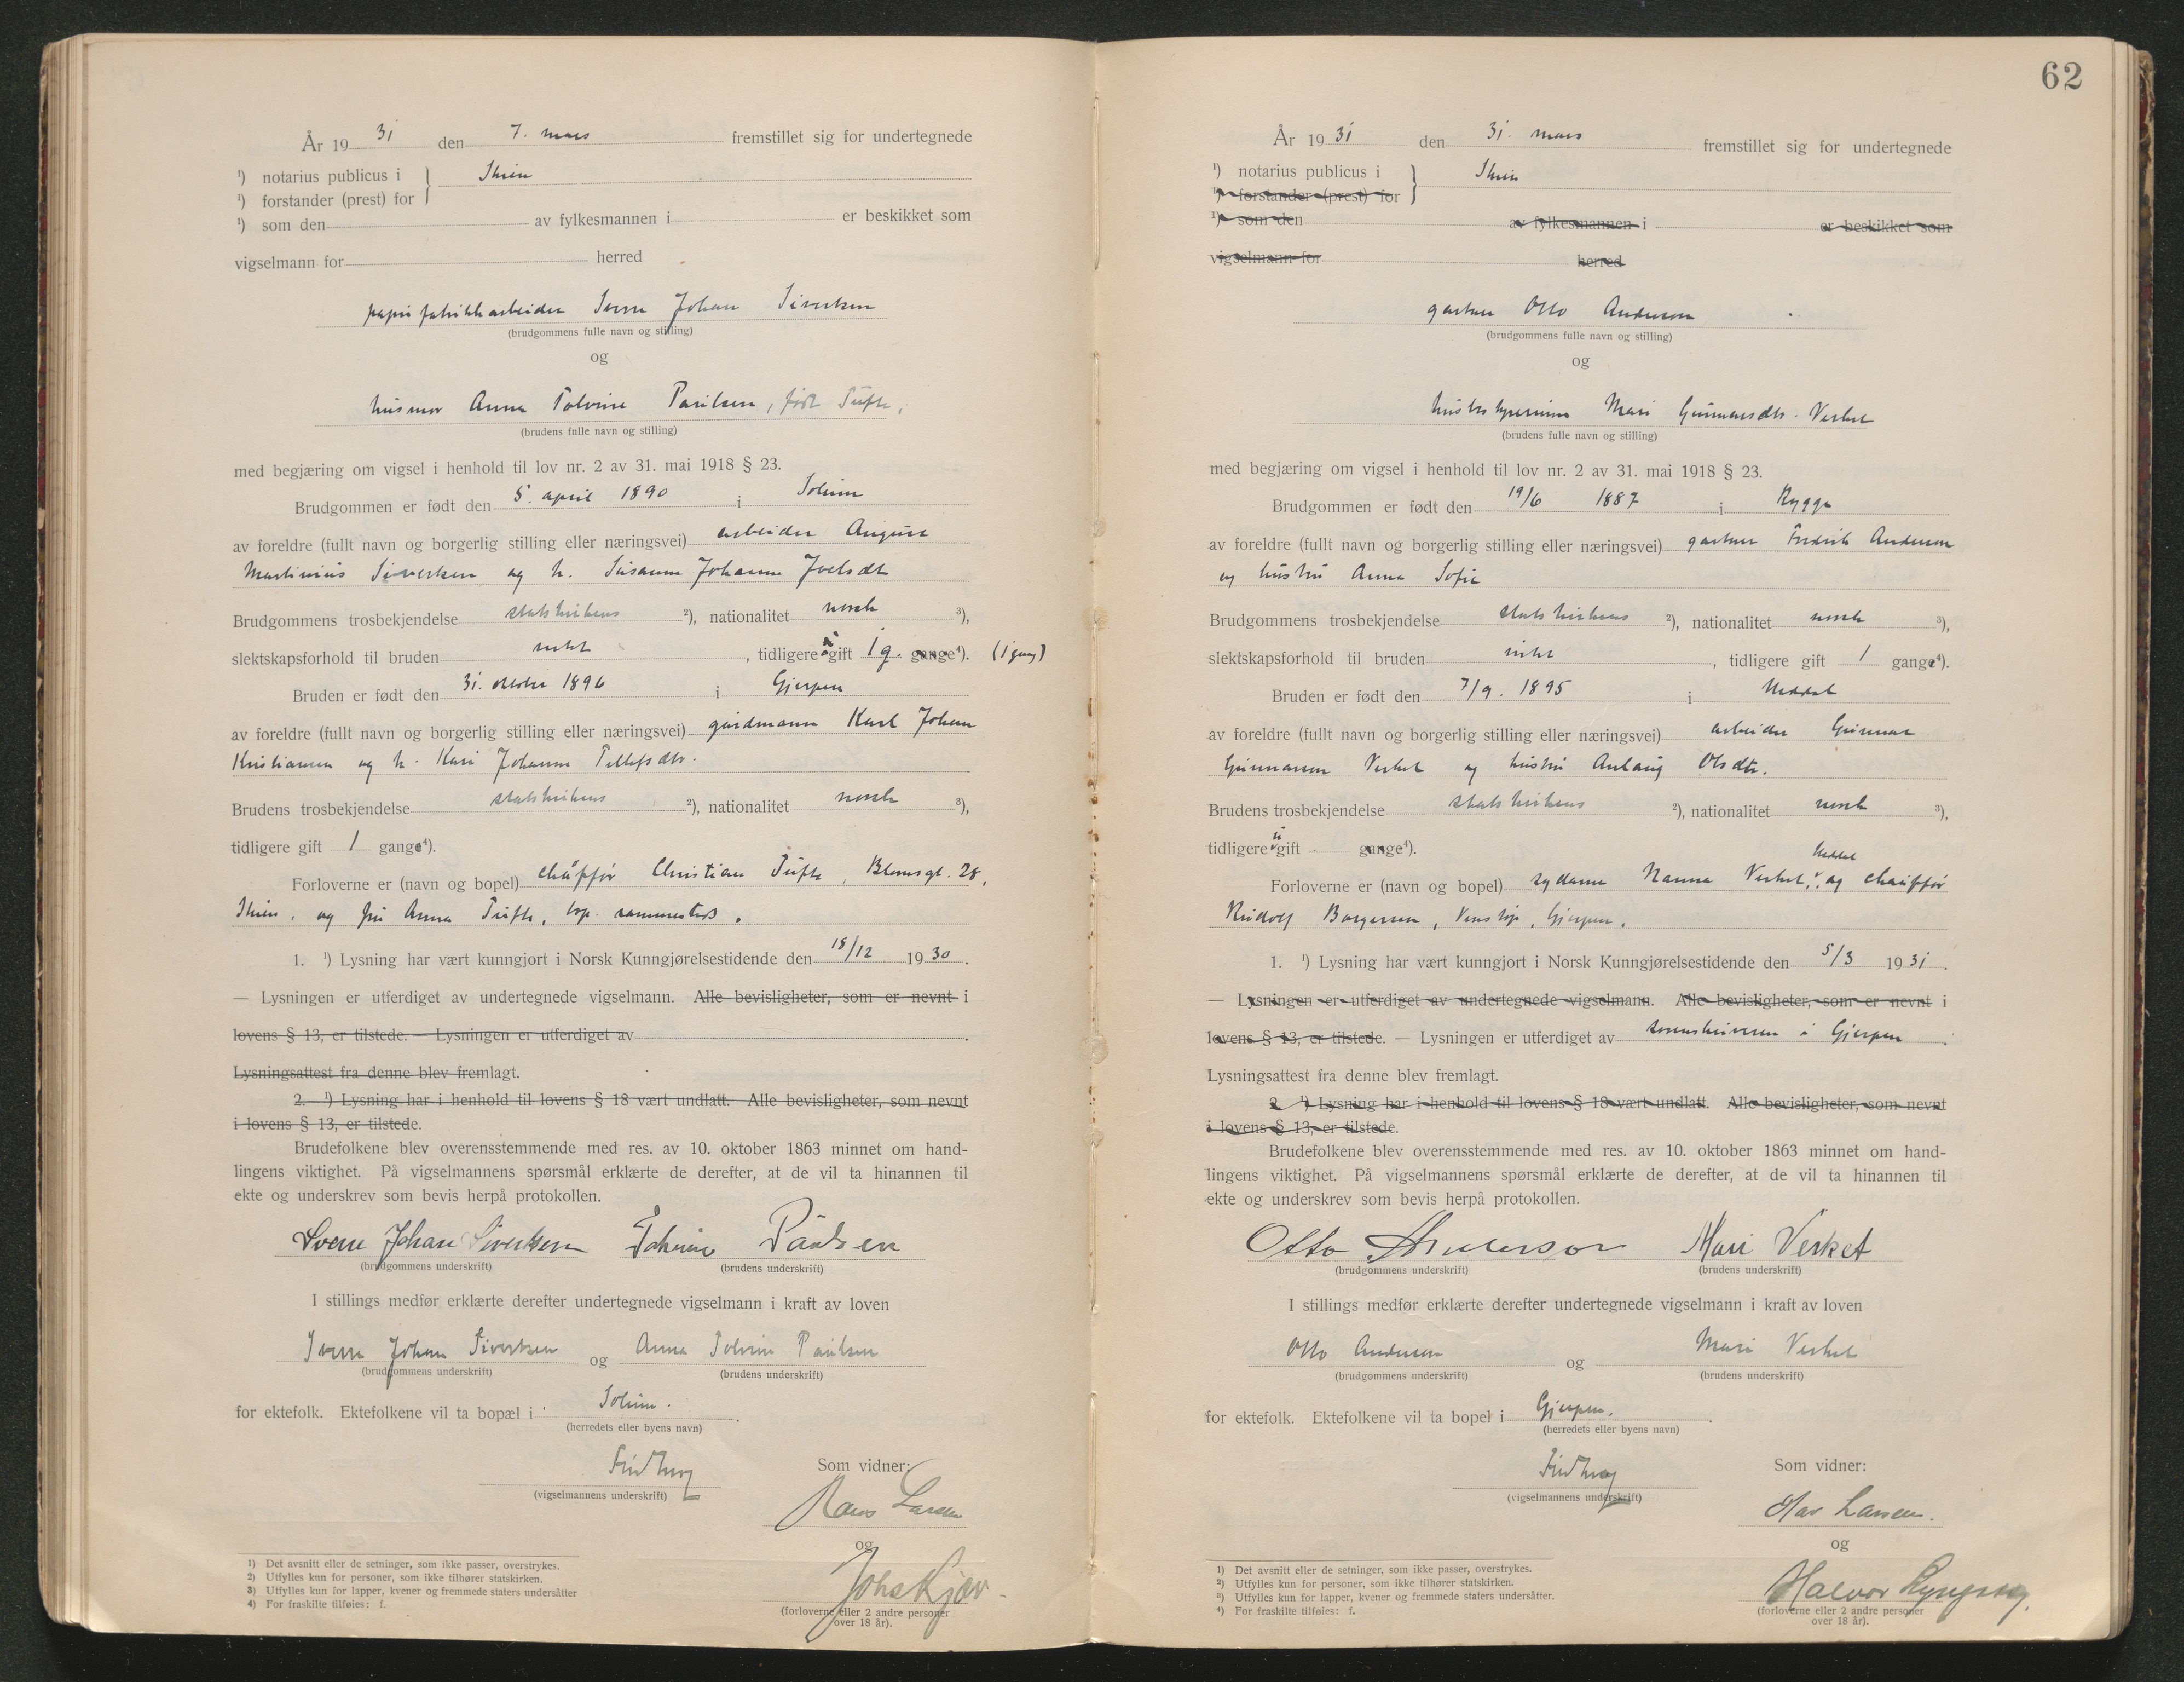 År 19 31 den 7. mars fremstillet sig for undertegnede
¹) notarius publicus i } Skien
¹) forstander (prest) for
¹) som den av fylkesmannen i er beskikket som
vigselmann for herred
papirfabrikkarbeider Sverre Johan Sivertsen
(brudgommens fulle navn og stilling)
og
husmor Anna Tolvine Paulsen, født Tufte,
(brudens fulle navn og stilling)
med begjæring om vigsel i henhold til lov nr. 2 av 31. mai 1918 § 23.
Brudgommen er født den 5. april 1890 i Solum
av foreldre (fullt navn og borgerlig stilling eller næringsvei) arbeider August
Martinius Sivertsen og h. Susanne Johanne Joelsdt
Brudgommens trosbekjendelse statskirkens ²), nationalitet norsk ³),
slektskapsforhold til bruden intet , tidligere gift 1 g. gange⁴). (1 gang)
Bruden er født den 31. oktober 1896 i Gjerpen
av foreldre (fullt navn og borgerlig stilling eller næringsvei) gårdmann Karl Johan
Kristiansen og h. Kari Johanne Tellefsdtr.
Brudens trosbekjendelse statskirkens ²), nationalitet norsk ³),
tidligere gift 1 gange⁴).
Forloverne er (navn og bopel) chauffør Christian Tufte, Blomsgt. 28,
Skien, og fru Anna Tufte, bop. sammesteds.
1. ¹) Lysning har vært kunngjort i Norsk Kunngjørelsestidende den 18/12 1930.
— Lysningen er utferdiget av undertegnede vigselmann. Alle bevisligheter, som er nevnt i
lovens § 13, er tilstede. — Lysningen er utferdiget av .
Lysningsattest fra denne blev fremlagt.
2. ¹) Lysning har i henhold til lovens § 18 vært undlatt. Alle bevisligheter, som nevnt
i lovens § 13, er tilstede.
Brudefolkene blev overensstemmende med res. av 10. oktober 1863 minnet om hand-
lingens viktighet. På vigselmannens spørsmål erklærte de derefter, at de vil ta hinannen til
ekte og underskrev som bevis herpå protokollen.
Sverre Johan Sivertsen Tolvine Paulsen
(brudgommens underskrift) (brudens underskrift)
I stillings medfør erklærte derefter undertegnede vigselmann i kraft av loven
Sverre Johan Sivertsen og Anna Tolvine Paulsen
(brudgommens underskrift) (brudens underskrift)
for ektefolk. Ektefolkene vil ta bopæl i Solum.
(herredets eller byens navn)
Som vidner:
(vigselmannens underskrift)
Larsen
og
(forloverne eller 2 andre personer
over 18 år).
1) Det avsnitt eller de setninger, som ikke passer, overstrykes.
2) Utfylles kun for personer, som ikke tilhører statskirken.
3) Utfylles kun for lapper, kvener og fremmede staters undersåtter
4) For fraskilte tilføies: f.
62
År 19 31 den 31. mars fremstillet sig for undertegnede
¹) notarius publicus i } Skien
¹) forstander (prest) for
¹) som den av fylkesmannen i er beskikket som
vigselmann for herred
gartner Otto Anderson
(brudgommens fulle navn og stilling)
og
husbestyrerinne Mari Gunnarsdtr. Verket
(brudens fulle navn og stilling)
med begjæring om vigsel i henhold til lov nr. 2 av 31. mai 1918 § 23.
Brudgommen er født den 19/6 1887 i Rygge
av foreldre (fullt navn og borgerlig stilling eller næringsvei) gartner Fredrik Anderson
og hustru Anna Sofie
Brudgommens trosbekjendelse statskirkens ²), nationalitet norsk ³),
slektskapsforhold til bruden intet , tidligere gift 1 gange⁴).
Bruden er født den 7/9. 1895 i Heddal
av foreldre (fullt navn og borgerlig stilling eller næringsvei) arbeider Gunnar
Gunnarsen Verket og hustru Anlaug Olsdtr.
Brudens trosbekjendelse statskirkens ²), nationalitet norsk ³),
tidligere ugift gange⁴).
Forloverne er (navn og bopel) sydame Nanna Verket, Heddal, og chauffør
Rudolf Borgersen, Venstøp, Gjerpen.
1. ¹) Lysning har vært kunngjort i Norsk Kunngjørelsestidende den 5/3 1931.
— Lysningen er utferdiget av undertegnede vigselmann. Alle bevisligheter, som er nevnt i
lovens § 13, er tilstede. — Lysningen er utferdiget av sorenskriveren i Gjerpen.
Lysningsattest fra denne blev fremlagt.
2. ¹) Lysning har i henhold til lovens § 18 vært undlatt. Alle bevisligheter, som nevnt
i lovens § 13, er tilstede.
Brudefolkene blev overensstemmende med res. av 10. oktober 1863 minnet om hand-
lingens viktighet. På vigselmannens spørsmål erklærte de derefter, at de vil ta hinannen til
ekte og underskrev som bevis herpå protokollen.
Otto Anderson Mari Verket
(brudgommens underskrift) (brudens underskrift)
I stillings medfør erklærte derefter undertegnede vigselmann i kraft av loven
Otto Anderson og Mari Verket
(brudgommens underskrift) (brudens underskrift)
for ektefolk. Ektefolkene vil ta bopel i Gjerpen.
(herredets eller byens navn)
Som vidner:
(vigselmannens underskrift)
Larsen.
og
Halvor
(forloverne eller 2 andre personer
over 18 år).
1) Det avsnitt eller de setninger, som ikke passer, overstrykes.
2) Utfylles kun for personer, som ikke tilhører statskirken.
3) Utfylles kun for lapper, kvener og fremmede staters undersåtter.
4) For fraskilte tilføies: f.